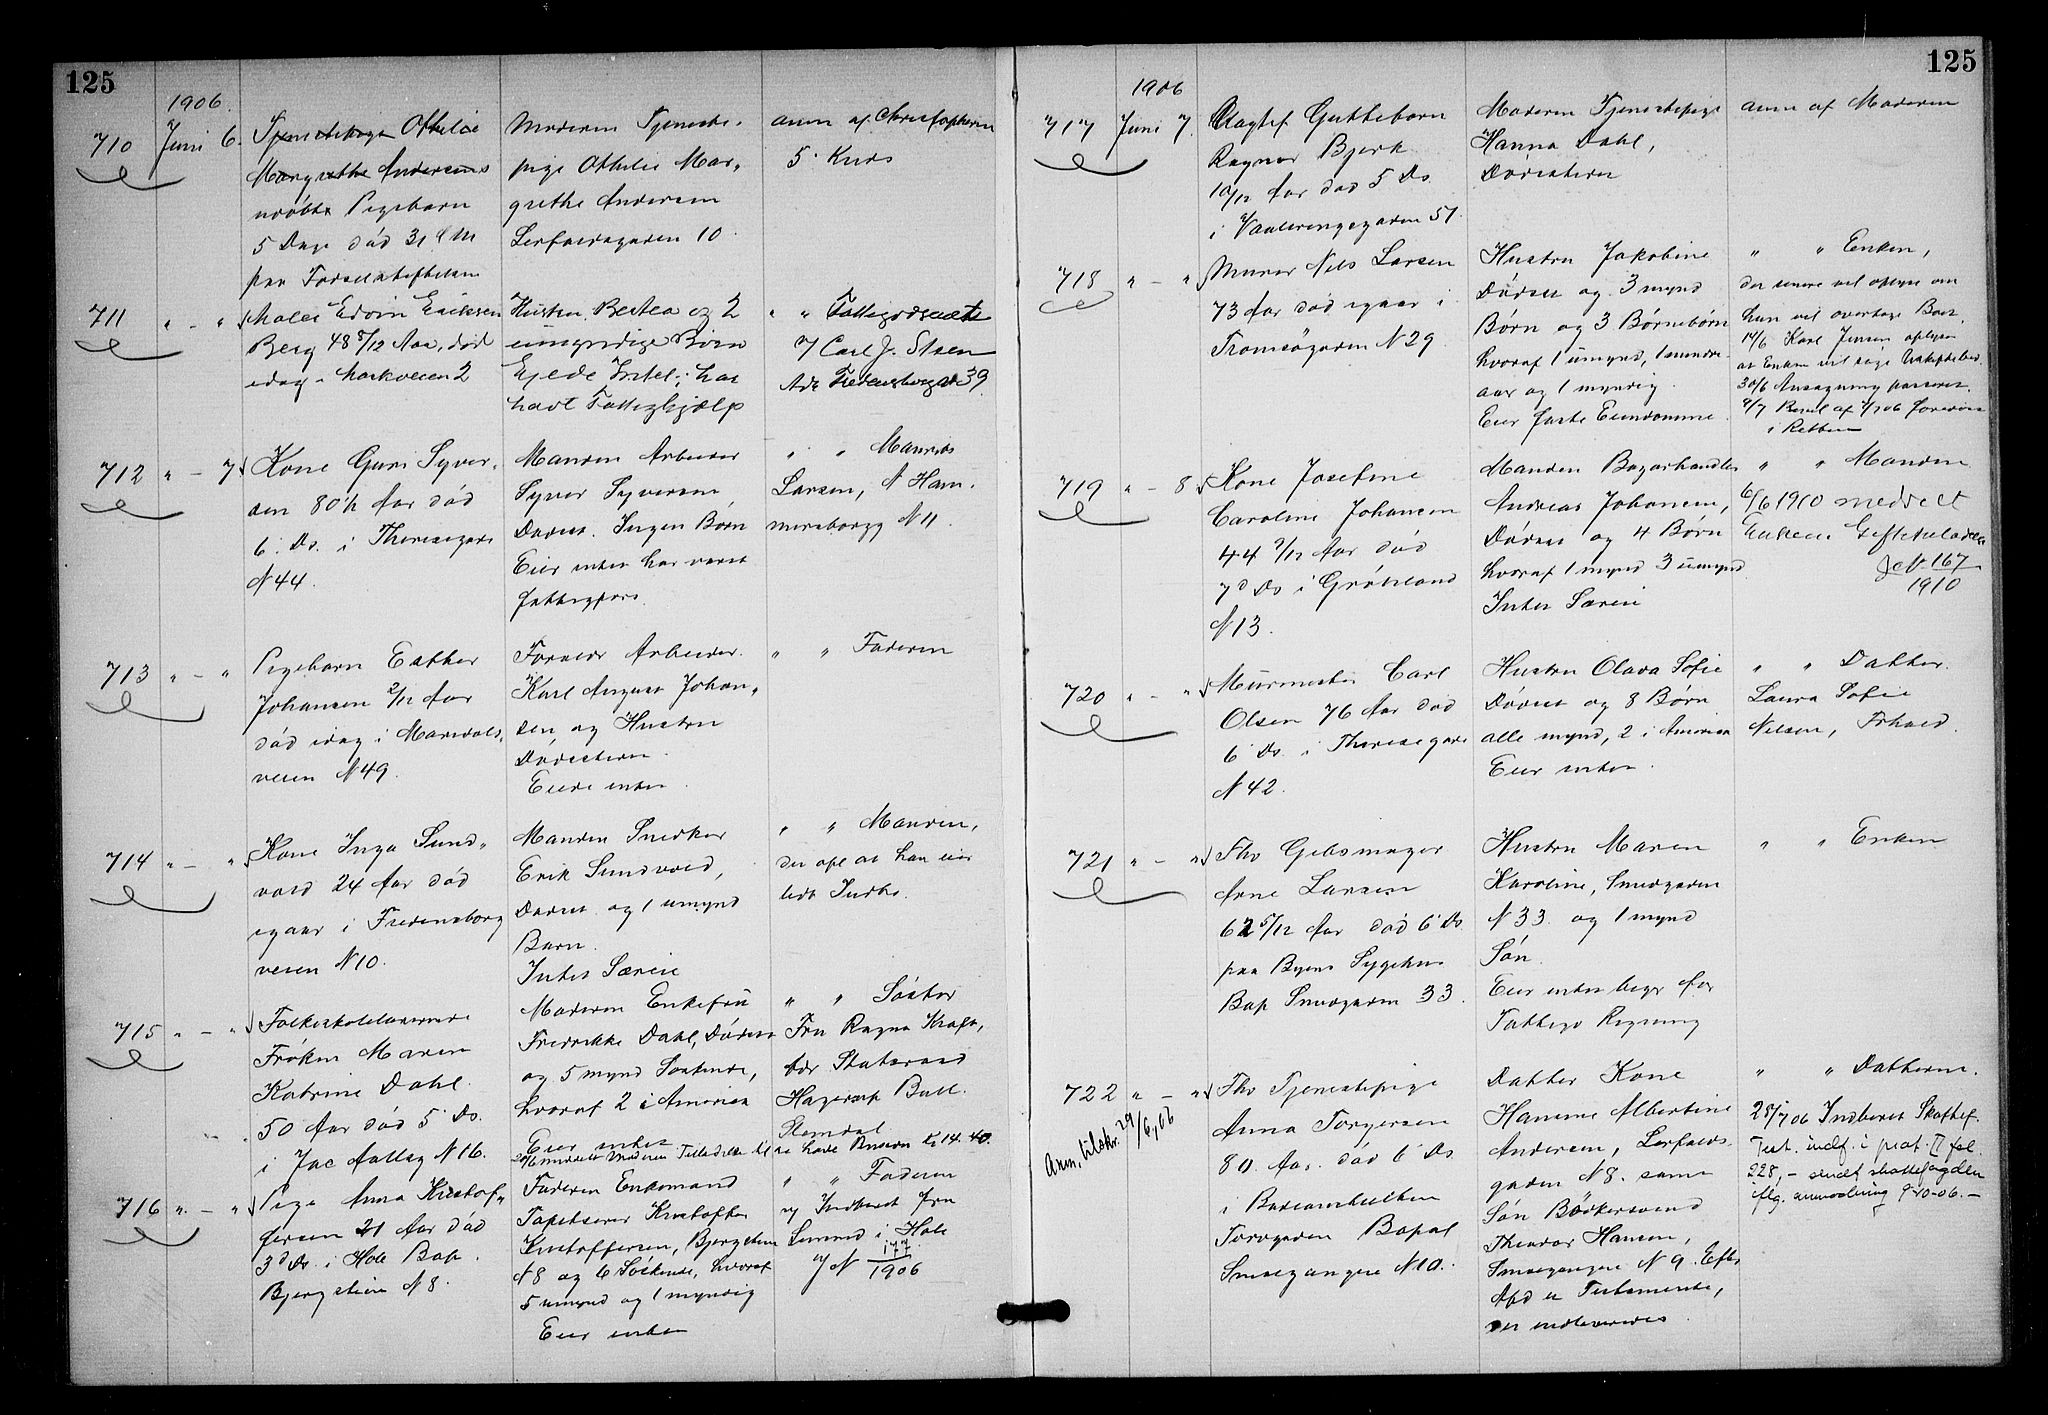 125
1906.
710
Juni 6.
Tjenestepige Othelie
Margrethe Andersens
udøbte Pigebarn
5 Dage død 31 f M
paa Fødselsstiftelsen
Moderen Tjeneste-
pige Othelie Mar-
grethe Andersen
Lerfaldsgaden 10.
anm af Christophersen
711
" - "
Maler Edvin Eriksen
Berg 48 5/12 Aar, død
idag - Markveien 2
Hustru Bertea og 2
umyndige Børn
Ejede Intet; har
havt Fattighjælp
" " Fattigvæsenet
v/ Carl J. Steen
Adr Fredensborgv 39.
712
" - 7
Kone Guri Syver-
sen 80 1/2 Aar død
6. Ds. i Theresegade
N 44.
Manden Arbeider
Syver Syversen
Dødsst. Ingen Børn
Eier intet har været
fattigfors.
" " Mandens
Larsen, N Ham-
mersborgg N 11.
713
" - "
Pigebarn Esther
Johansen 2/12 Aar
død idag i Maridals-
veien N 49.
Forældr Arbeider
Karl August Johan-
sen og Hustru
Dødsstedet.
Eiede intet.
" " Faderen
714
" - "
Kone Inga Sund-
vold 24 Aar død
igaar i Fredensborg
veien N 10.
Manden Snedker
Erik Sundvold,
Dødsst. og 1 umynd
Barn.
Intet Særeie
" " Manden,
der opl at han eier
lidt Indbo.
715
" - "
Folkeskolelærerinde
Frøken Maren
Katrine Dahl.
50 Aar død 5 Ds.
i Jac Aallsg N 16.
Moderen Enkefru
Fredrikke Dahl, Dødsst
og 5 mynd Søskende,
hvoraf 2 i Amerika
Eier intet
" " Søster
Fru Ragna Kraft,
Adr Statsraad
Hagerup Bull.
Slemdal
716
" - "
Pige Anna Kristof-
fersen 21 Aar død
3d Ds. i Hole Bop.
Bjergstien N 8.
Faderen Enkemand
Tapetserer Kristoffer
Kristoffersen, Bjergstien
N 8 og 6 Søskende, hvoraf
5 umynd og 1 myndig
Eier intet
" " Faderen
og Indberet fra
Lensmd i Hole
J N 177
1906
125
1906
717
Juni 7.
Uægtef Guttebarn
Ragnar Bjerk
10/12 Aar død 5 Ds.
i Vaalerengegaden 51.
Moderen Tjenestepige
Hanna Dahl,
Dødsstedet
anm af Moderen
718
" - "
Murer Nils Larsen
73 Aar død igaar i
Tromsøgaden N 29.
Hustru Jakobine
Dødsst og 3 mynd
Børn og 3 Børnebørn
hvoraf 1 umynd, 1 mindre-
aar og 1 myndig.
Eier faste Eiendomme.
" " Enken,
der senere vil oplyse om
hun vil overtage Boet.
14/6 Karl Jensen oplyser
at Enken vil søge Uskiftebev
i Retten
719
" - 8
Kone Josefine
Caroline Johansen
44 7/12 Aar død
7d Ds i Grønland
N 13.
Manden Bazarhandler
Andreas Johansen,
Dødsst og 4 Børn
hvoraf 1 mynd 3 umynd
Intet Særeie
" " Manden
6/6 1910 meddelt
Enkem. Giftetilladelse
J N 167
1910
720
" - "
Murmester Carl
Olsen 76 Aar død
6 Ds. i Theresegade
N 42.
Hustru Olava Sofie
Dødsst og 8 Børn
alle mynd, 2 i Amerika
Eier intet.
" " Datter
Laura Sofie
Nielsen, Frhald.
721
" - "
Fhv Gibsmager
Arne Larsen
62 5/12 Aar død 6 Ds.
paa Byens Sygehus
Bop Smedgaden 33.
Hustru Maren
Karoline, Smedgaden
N 33. og 1 mynd
Søn.
Eier intet begr for
Fattigv Regning
" " Enken
722
" - "
Anm, tilskr. 29/6,06
Fhv Tjenestepige
Anna Torgersen
80. Aar. død 6 Ds.
i Barnestiftelsen
Torvgaden Bopæl
Smedgangen N 10.
Datter Kone
Hanine Albertine
Andersen, Lerfalds-
gaden N 8. samt
Søn Bødkersvend
Theodor Hansen,
Smedgangen N 9. Efter
Afd er Testamente,
der indleveredes
" " Datteren.
28/7 06 Indberet Skiftef.
Test. indf. i prot. II fol.
228, - sendt skattefogden
flg. anmodning 9-10-06. -